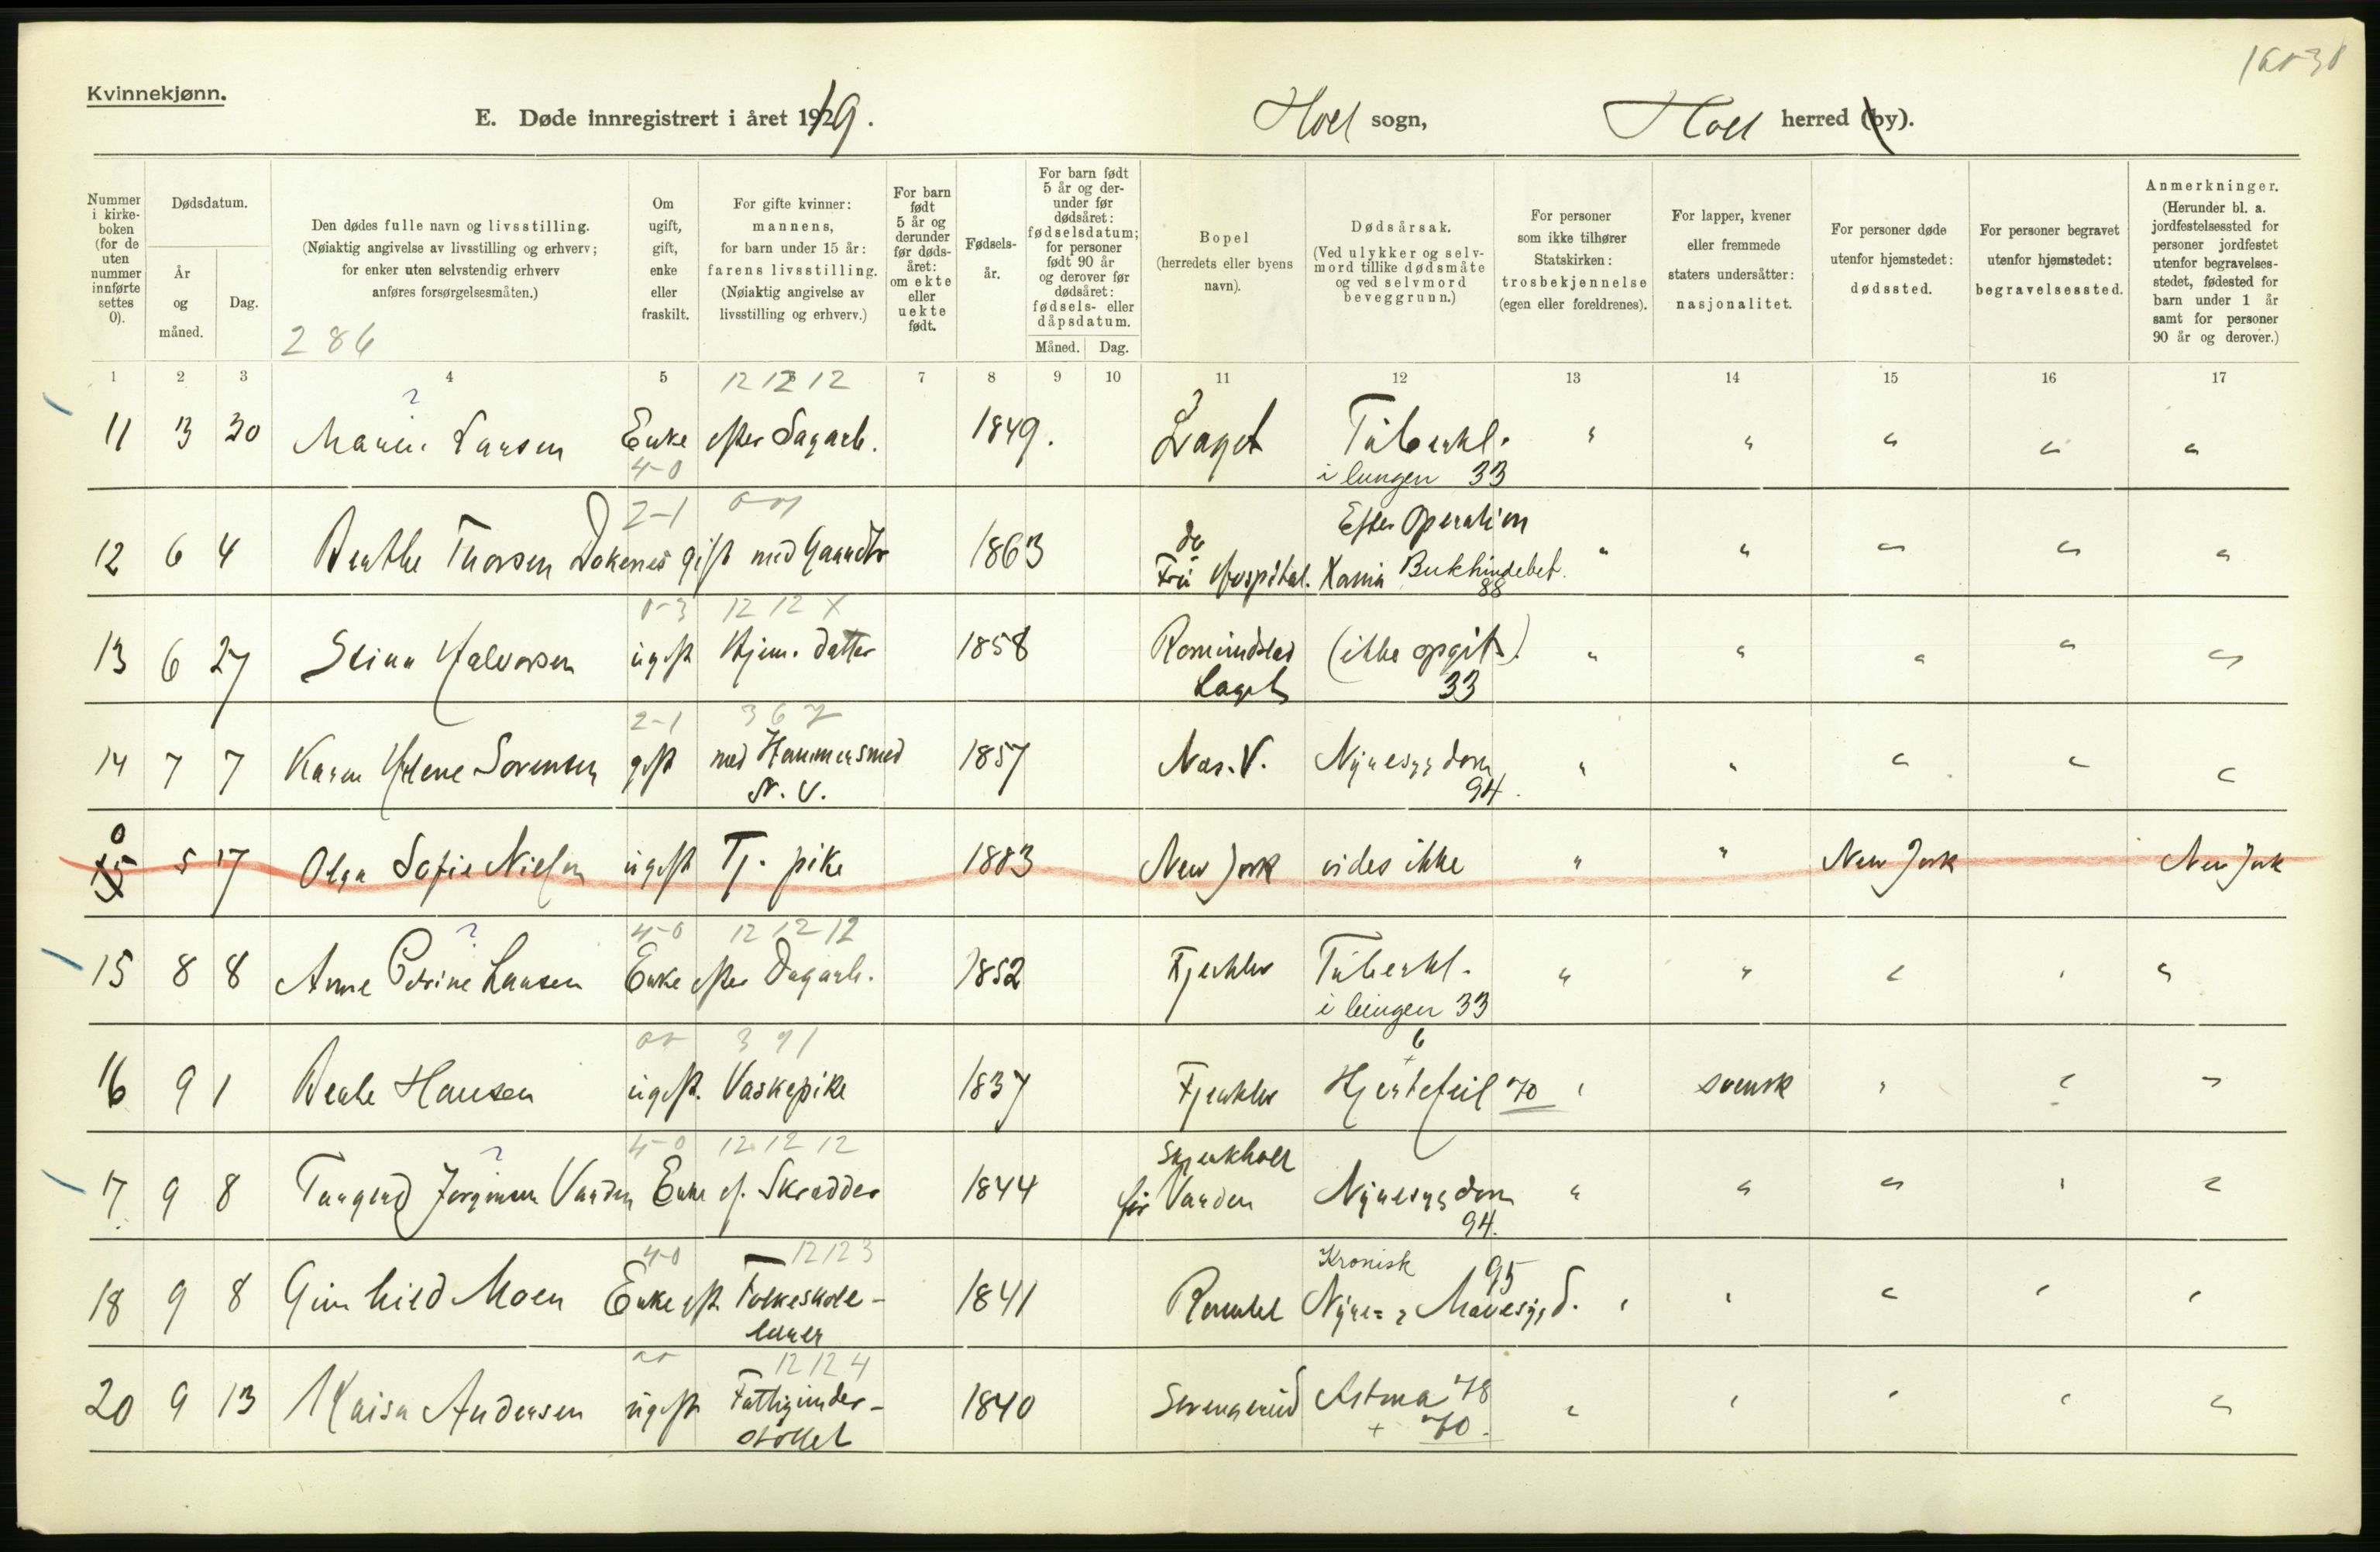 Kvinnekjønn.
E. Døde innregistrert i året 1919.
Holt sogn, Holt herred (by).
Nummer i kirkeboken (for de uten nummer innførte settes 0).
Dødsdatum.
År og måned.
Dag.
Den dødes fulle navn og livsstilling.
(Nøiaktig angivelse av livsstilling og erhverv;
for enker uten selvstendig erhverv
anføres forsørgelsesmåten.)
286
Om ugift, gift, enke eller fraskilt.
For gifte kvinner:
mannens,
for barn under 15 år:
farens livsstilling.
(Nøiaktig angivelse av
livsstilling og erhverv.)
For barn født 5 år og derunder før dødsåret: om ekte eller uekte født.
Fødselsår.
For barn født 5 år og derunder før dødsåret: fødselsdatum; for personer født 90 år og derover før dødsåret: fødsels- eller dåpsdatum.
Måned. Dag.
Bopel
(herredets eller byens
navn).
Dødsårsak.
(Ved ulykker og selvmord tillike dødsmåte og ved selvmord beveggrunn.)
For personer
som ikke tilhører
Statskirken:
trosbekjennelse
(egen eller foreldrenes).
For lapper, kvener
eller fremmede
staters undersåtter:
nasjonalitet.
For personer døde
utenfor hjemstedet:
dødssted.
For personer begravet
utenfor hjemstedet:
begravelsessted.
Anmerkninger.
(Herunder bl. a. jordfestelsessted for personer jordfestet utenfor begravelsesstedet, fødested for barn under 1 år samt for personer 90 år og derover.)
1 2 3 4 5 12 12 12 7 8 9 10 11 12 13 14 15 16 17
11 3 30 Maren Larsen Enke efter Dagarb. 1849. Laget Tuberkl. " " " " "
4-0 i lungen 33
2-1 Efter Operation
12 6 4 Berthe Thorsen gift med 1863 Hospital. Kania Bukhindebet. " " " " "
88
0-3 12 12 X
13 6 27 Stina Halvorsen ugift Hjem. datter 1858 (ikke opgit). " " " " "
Laget 33
2-1 3 6 7
14 7 7 Karen Helene Sørensen gift med Hammersmed 1857 Nes. V. Nyresygdom " " " " "
N. V. 94.
0
15 5 17 Olga Sofie Nielsen ugift Tj. pike 1883 New York vides ikke " " New York New York
4-0 12 12 12
15 8 8 Anne Petrine Larsen Enke efter Dagarb. 1852 Fjerkler Tuberkl. " " " " "
i lungen 33
3 91 6
16 9 1 Berte Hansen ugift. Vaskepike 1837 Fjerkler Hjertefeil 70 " svensk " " "
4-0 12 12 12
17 9 8 Jørginsen Varden Enke ef. Skrædder 1844 før Varden Nyresygdom " " " " "
94.
4-0 12 12 3 Kronisk 95
18 9 8 Gunhild Moen Enke eft. Folkeskole- 1841 Nyre- & Mavesygd. " " " " "
lærer
12 12 4
20 9 13 Kaisa Andersen ugift Fattigunder- 1840 Astma 78 " " " " "
støttet + 70.